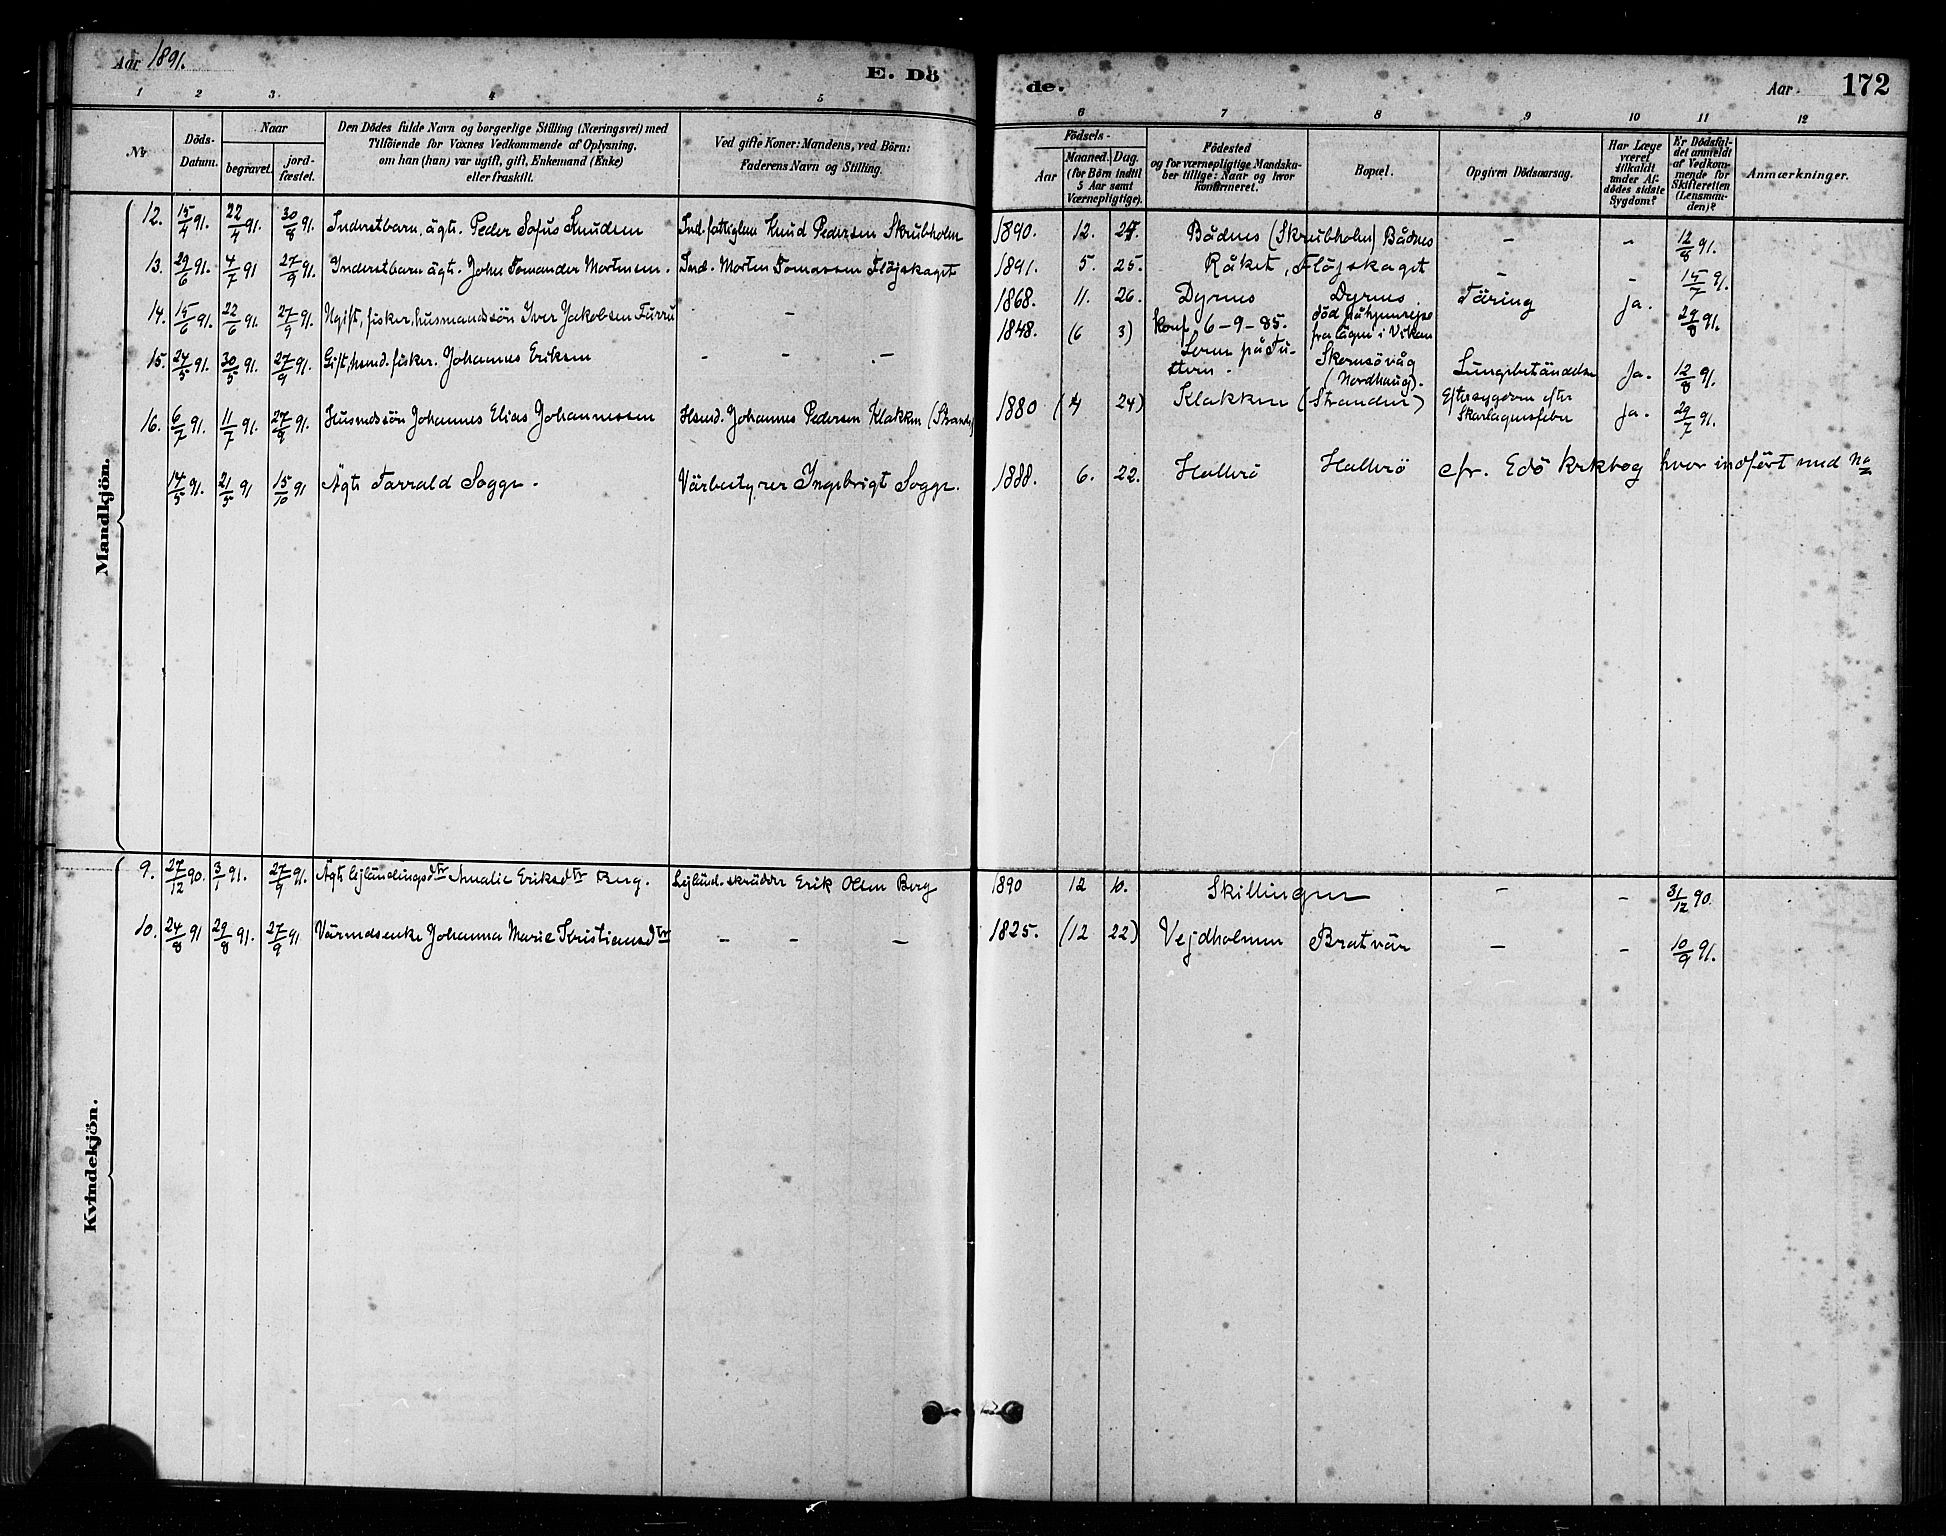 Aar 1891.
E. Dö
de.
Aar
172
1 2 3. 4 5 6 7 8 9 10 11 12
Nr
Döds-
Datum.
Naar
begravet.
jord-
fæstet.
Den Dödes fulde Navn og borgerlige Stilling (Næringsvei) med
Tilföiende for Voxnes Vedkommende af Oplysning,
om han (hun) var ugift, gift, Enkemand (Enke)
eller fraskilt.
Ved gifte Koner: Mandens, ved Börn:
Faderens Navn og Stilling.
Födsels-
Aar
Maaned. Dag.
(for Börn indtil
5 Aar samt
Værnepligtige).
Födested
og for værnepligtige Mandska-
ber tillige: Naar og hvor
konfirmeret.
Bopæl.
Opgiven Dödsaarsag.
Har Læge
været
tilkaldt
under Af-
dödes sidste
Sygdom?
Er Dödsfal-
det anmeldt
af Vedkom-
mende for
Skifteretten
(Lensman-
den)?
Anmærkninger.
Mandkjön.
12. 15/4 91. 22/4 91. 30/8 91. Inderstbarn, ägte. Peder Sofus Knudsen Ind. fattiglem Knud Pedersen Skrubholm 1890. 12. Bådnes (Skrubholm) Bådnes - - 12/8 91.
13. 29/6 91. 4/7 91 27/9 91. Inderstbarn ägt. John Tomander Mortensen. Ind. Morten Tomassen Flöjskaget 1891. 5. 25. Råket, Flöjskaget - - 15/7 91.
14. 15/6 91. 22/6 91. 27/9 91. Ugift, fisker, husmandssön Iver Jakobsen Furru - 1868. 11. 26. Dyrnes Dyrnes. Täring ja. 29/8 91.
konf. 6-9-85. död på hjemrejse
fra lägen i Vikan
15. 24/5 91. 30/5 91. 27/9 91. Gift, husmd. fisker. Johannes Eriksen - - - 1848. (6 3) på Tu-
stern. Skernsövåg
(Nordhaug). Lungebetändelse Ja. 12/8 91.
16. 6/7 91. 11/7 91. 27/9 91. Husmdssön Johannes Elias Johannessen Husmd. Johannes Pedersen Klakken (Strand) 1880 (4 24) Klakken (Stranden) Eftersygdom efter
Skarlagensfeber Ja. 29/7 91.
14/5 91. 21/5 91 15/10 91 Ägte Tarrald Sogge. Värbestyrer Ingebrigt Sogge. 1888. 6. 22. Hallerö Hallerö cfr. Edö krkbog hvor indfört med No
Kvindekjön.
9. 27/12 90. 3/1 91. 27/9 91. Ägte lejländingsdtr Amalie Eriksdtr Berg. Lejländ. skrädder Erik Olsen Berg 1890 12 10. Skillingen - - 31/12 90.
10. 24/8 91 29/8 91. 27/9 91 Värmdsenke Johanna Marie Kristiansdtr - - - 1825. (12 22) Vejdholmen Bratvär - - 10/9 91.